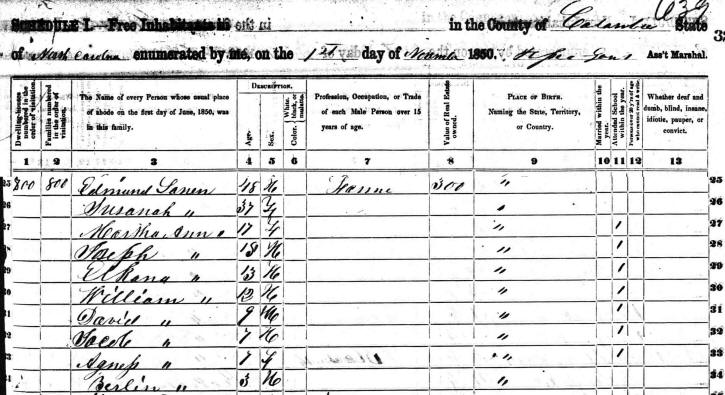 639
SCHEDULE I. Free Inhabitants in in the County of State
of North Carolina enumerated by me, on the 1st day of 1850. Ass't Marshal.
Dwelling-houses numbered in the order of visitation.
Families numbered in the order of visitation.
The Name of every Person whose usual place of abode on the first day of June, 1850, was in this family.
DESCRIPTION.
Age.
Sex.
Color. White, black, or mulatto.
Profession, Occupation, or Trade of each Male Person over 15 years of age.
Value of Real Estate owned.
PLACE OF BIRTH. Naming the State, Territory, or Country.
Married within the year.
Attended School within the year.
Whether deaf and dumb, blind, insane, idiotic, pauper, or convict.
1 2 3 4 5 6 7 8 9 10 11 12 13
25 800 800 Edmund 48 M 300 " 25
26 Susanah " 37 F " 26
27 Martha Ann " 17 F " 1 27
28 Joseph " M " 1 28
29 Elkana " 13 M " 1 29
30 William " 12 M " 1 30
31 David " 9 M " 1 31
32 Jacob " 7 M " 1 32
33 Agness " 7 F " 1 33
34 Berlin " 3 M " 34